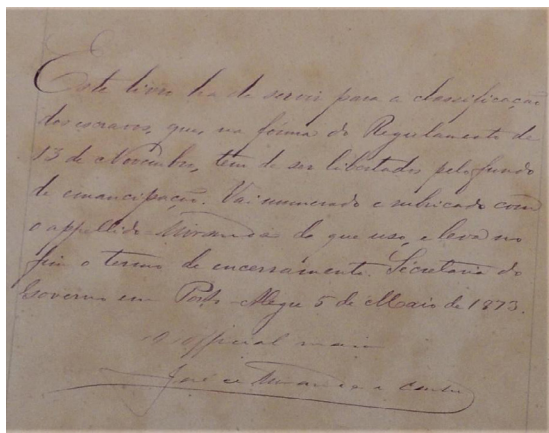 Este livro ha de servir para a classificação
dos escravos, que, na forma do Regulamento de
13 de Novembro, tem de ser libertados pelo fundo
de emancipação. Vai numerado e rubricado com
o appellido Miranda de que uso, e leva no
fim o termo de encerramento. Secretaria do
Governo em Porto Alegre 5 de Maio de 1873.
O official maior
José de Miranda e Castro